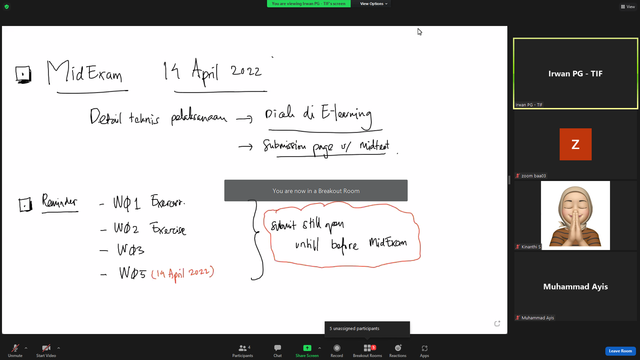 You are viewing Irwan PG - TIF's screen
View Options
View
MidExam 14 April 2022
Detail tehnis pelaksanaan → Dicek di E-learning
→ Submission page u/ midtest.
Reminder
- WØ1 Exercise
- WØ2 Exercise
- WØ3
- WØ5 (14 April 2022)
submit still open
untill before MidExam
You are now in a Breakout Room
Irwan PG - TIF
Irwan PG - TIF
Z
zoom baa03
Kinanthi S
Muhammad Ayis
Muhammad Ayis
5 unassigned participants
Unmute
Start Video
Participants
4
Chat
Share Screen
Record
Breakout Rooms
Reactions
Apps
Leave Room